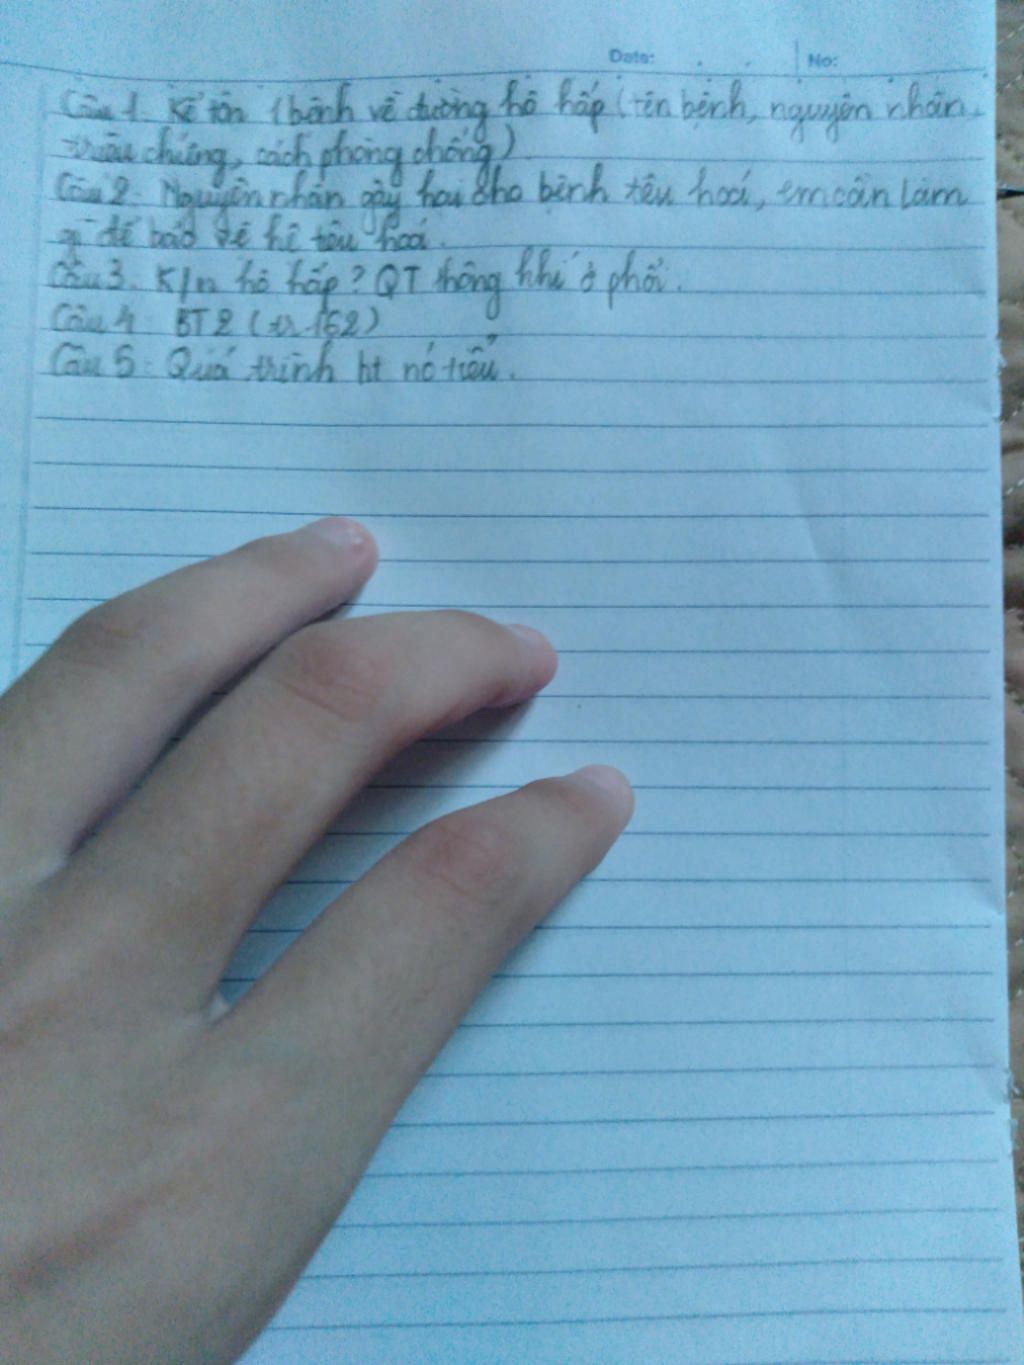 Date: No:
Câu 1. Kể tên 1 bệnh về đường hô hấp (tên bệnh, nguyên nhân,
triệu chứng, cách phòng chống)
Câu 2. Nguyên nhân gây hại cho bệnh tiêu hoá, em cần làm
gì để bảo vệ hệ tiêu hoá.
Câu 3. K/n hô hấp? QT thông khí ở phổi.
Câu 4. BT2 (tr 162)
Câu 5: Quá trình ht nc tiểu.